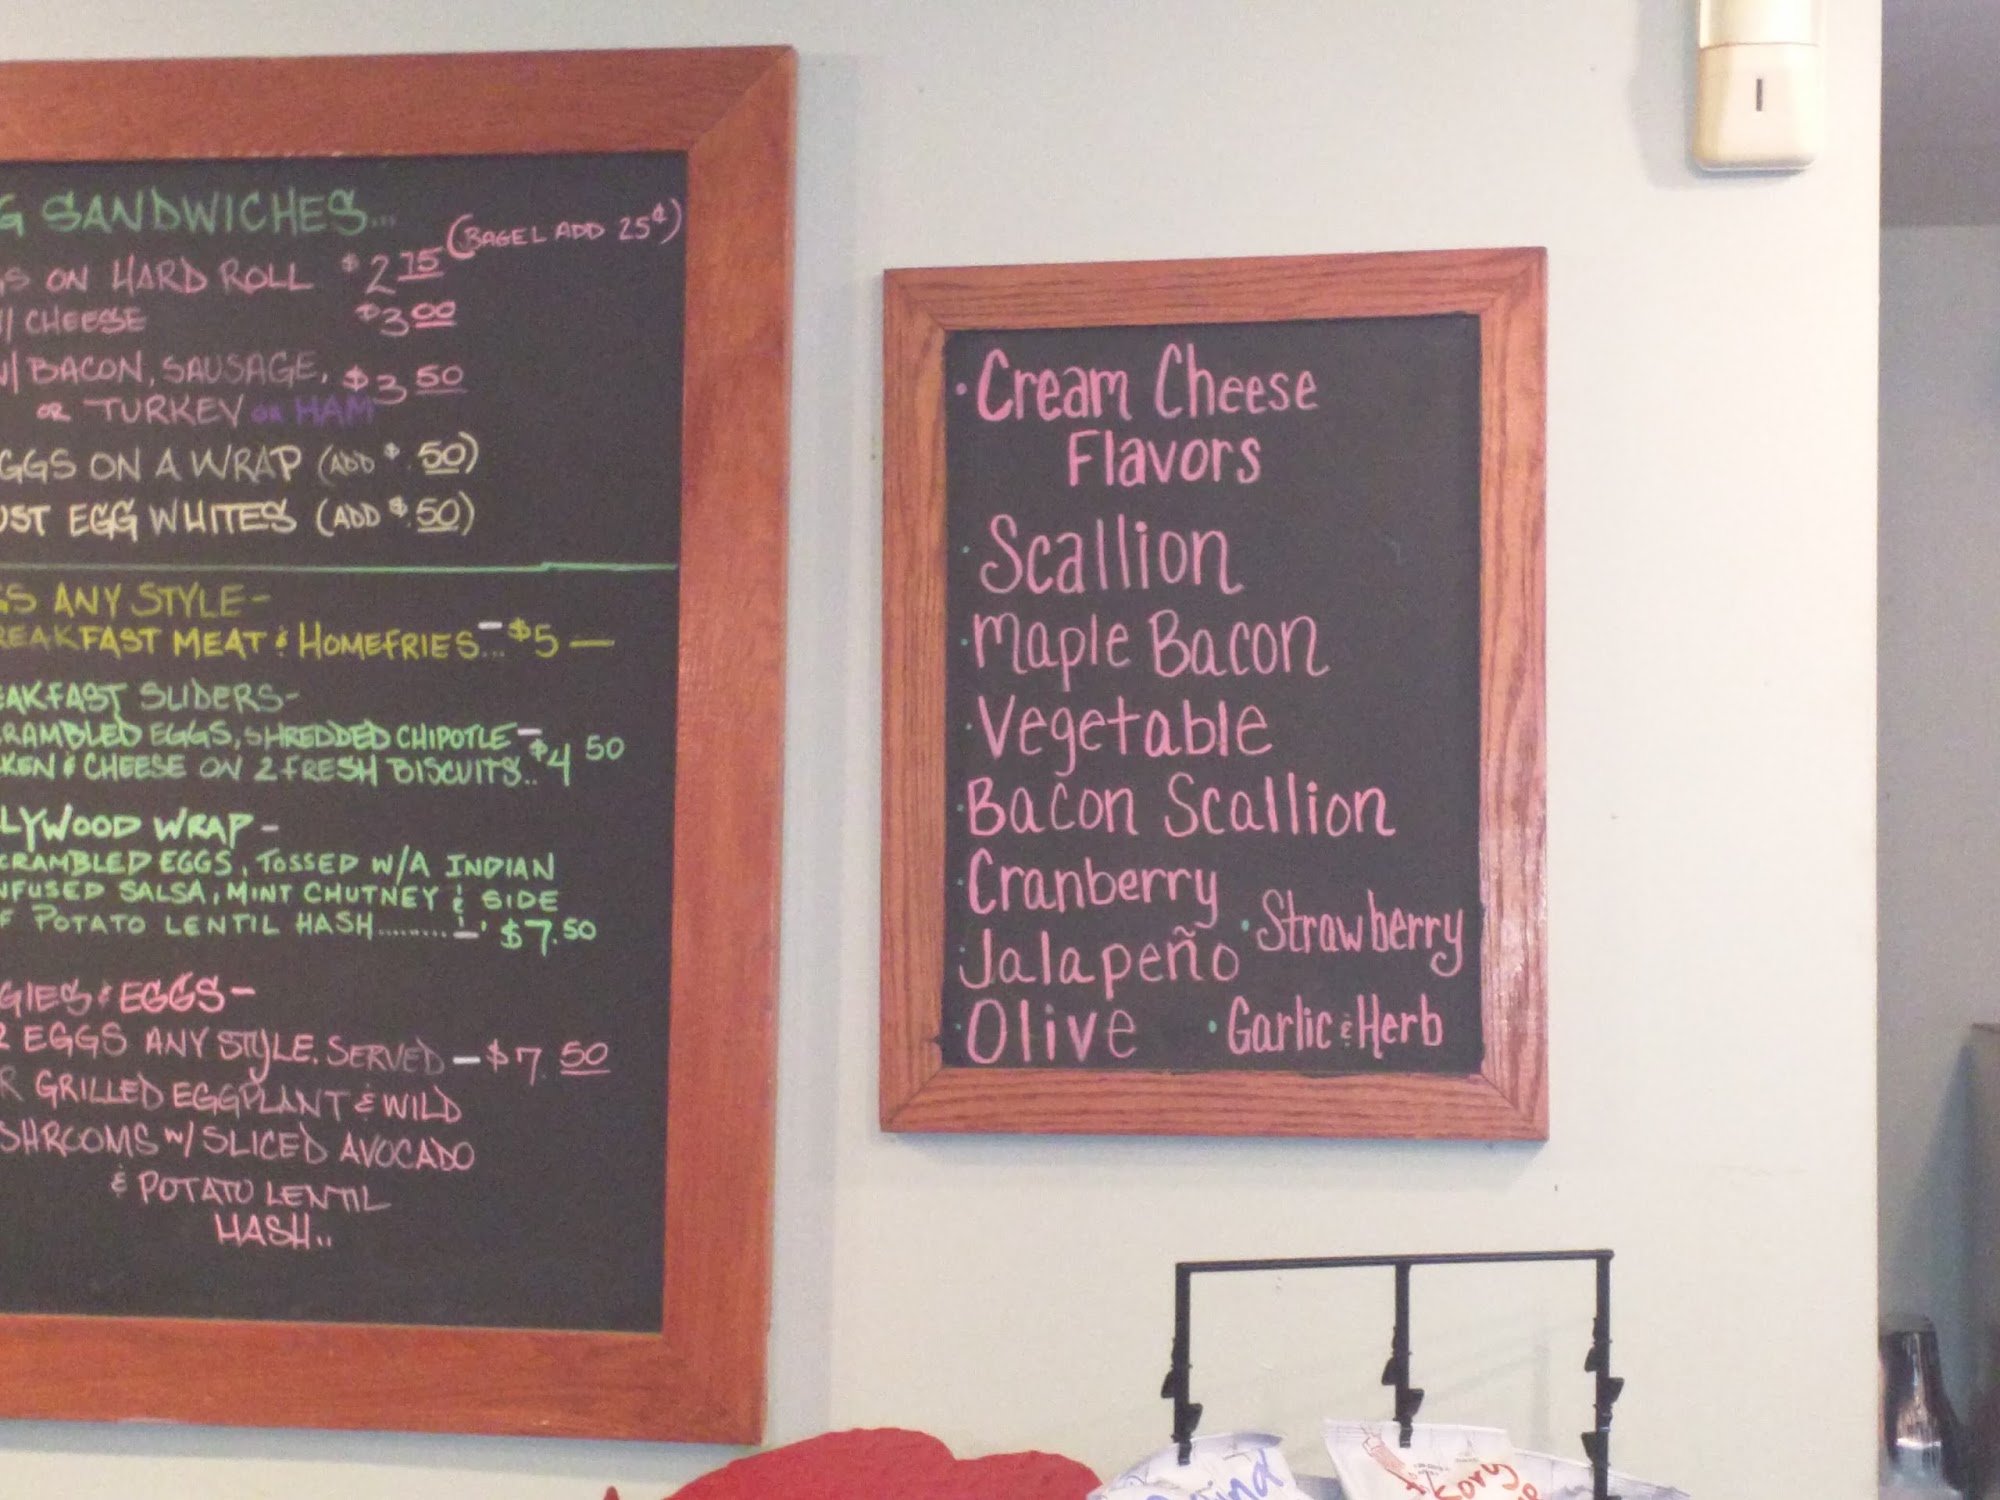 G SANDWICHES...
(BAGEL ADD 25¢)
GS ON HARD ROLL $2.75
W/ CHEESE $3.00
W/ BACON, SAUSAGE, $3.50
OR TURKEY OR HAM
GGS ON A WRAP (ADD $.50)
UST EGG WHITES (ADD $.50)
GS ANY STYLE-
REAKFAST MEAT & HOMEFRIES... $5 —
EAKFAST SLIDERS-
RAMBLED EGGS, SHREDDED CHIPOTLE
KEN & CHEESE ON 2 FRESH BISCUITS.. $4 50
LYWOOD WRAP -
CRAMBLED EGGS, TOSSED W/A INDIAN
NFUSED SALSA, MINT CHUTNEY & SIDE
F POTATO LENTIL HASH......... $7.50
GGIES & EGGS-
2 EGGS ANY STYLE. SERVED - $7.50
R GRILLED EGGPLANT & WILD
SHROOMS W/ SLICED AVOCADO
& POTATO LENTIL
HASH..
· Cream Cheese
Flavors
· Scallion
· Maple Bacon
· Vegetable
· Bacon Scallion
· Cranberry
· Strawberry
· Jalapeño
· Olive · Garlic & Herb